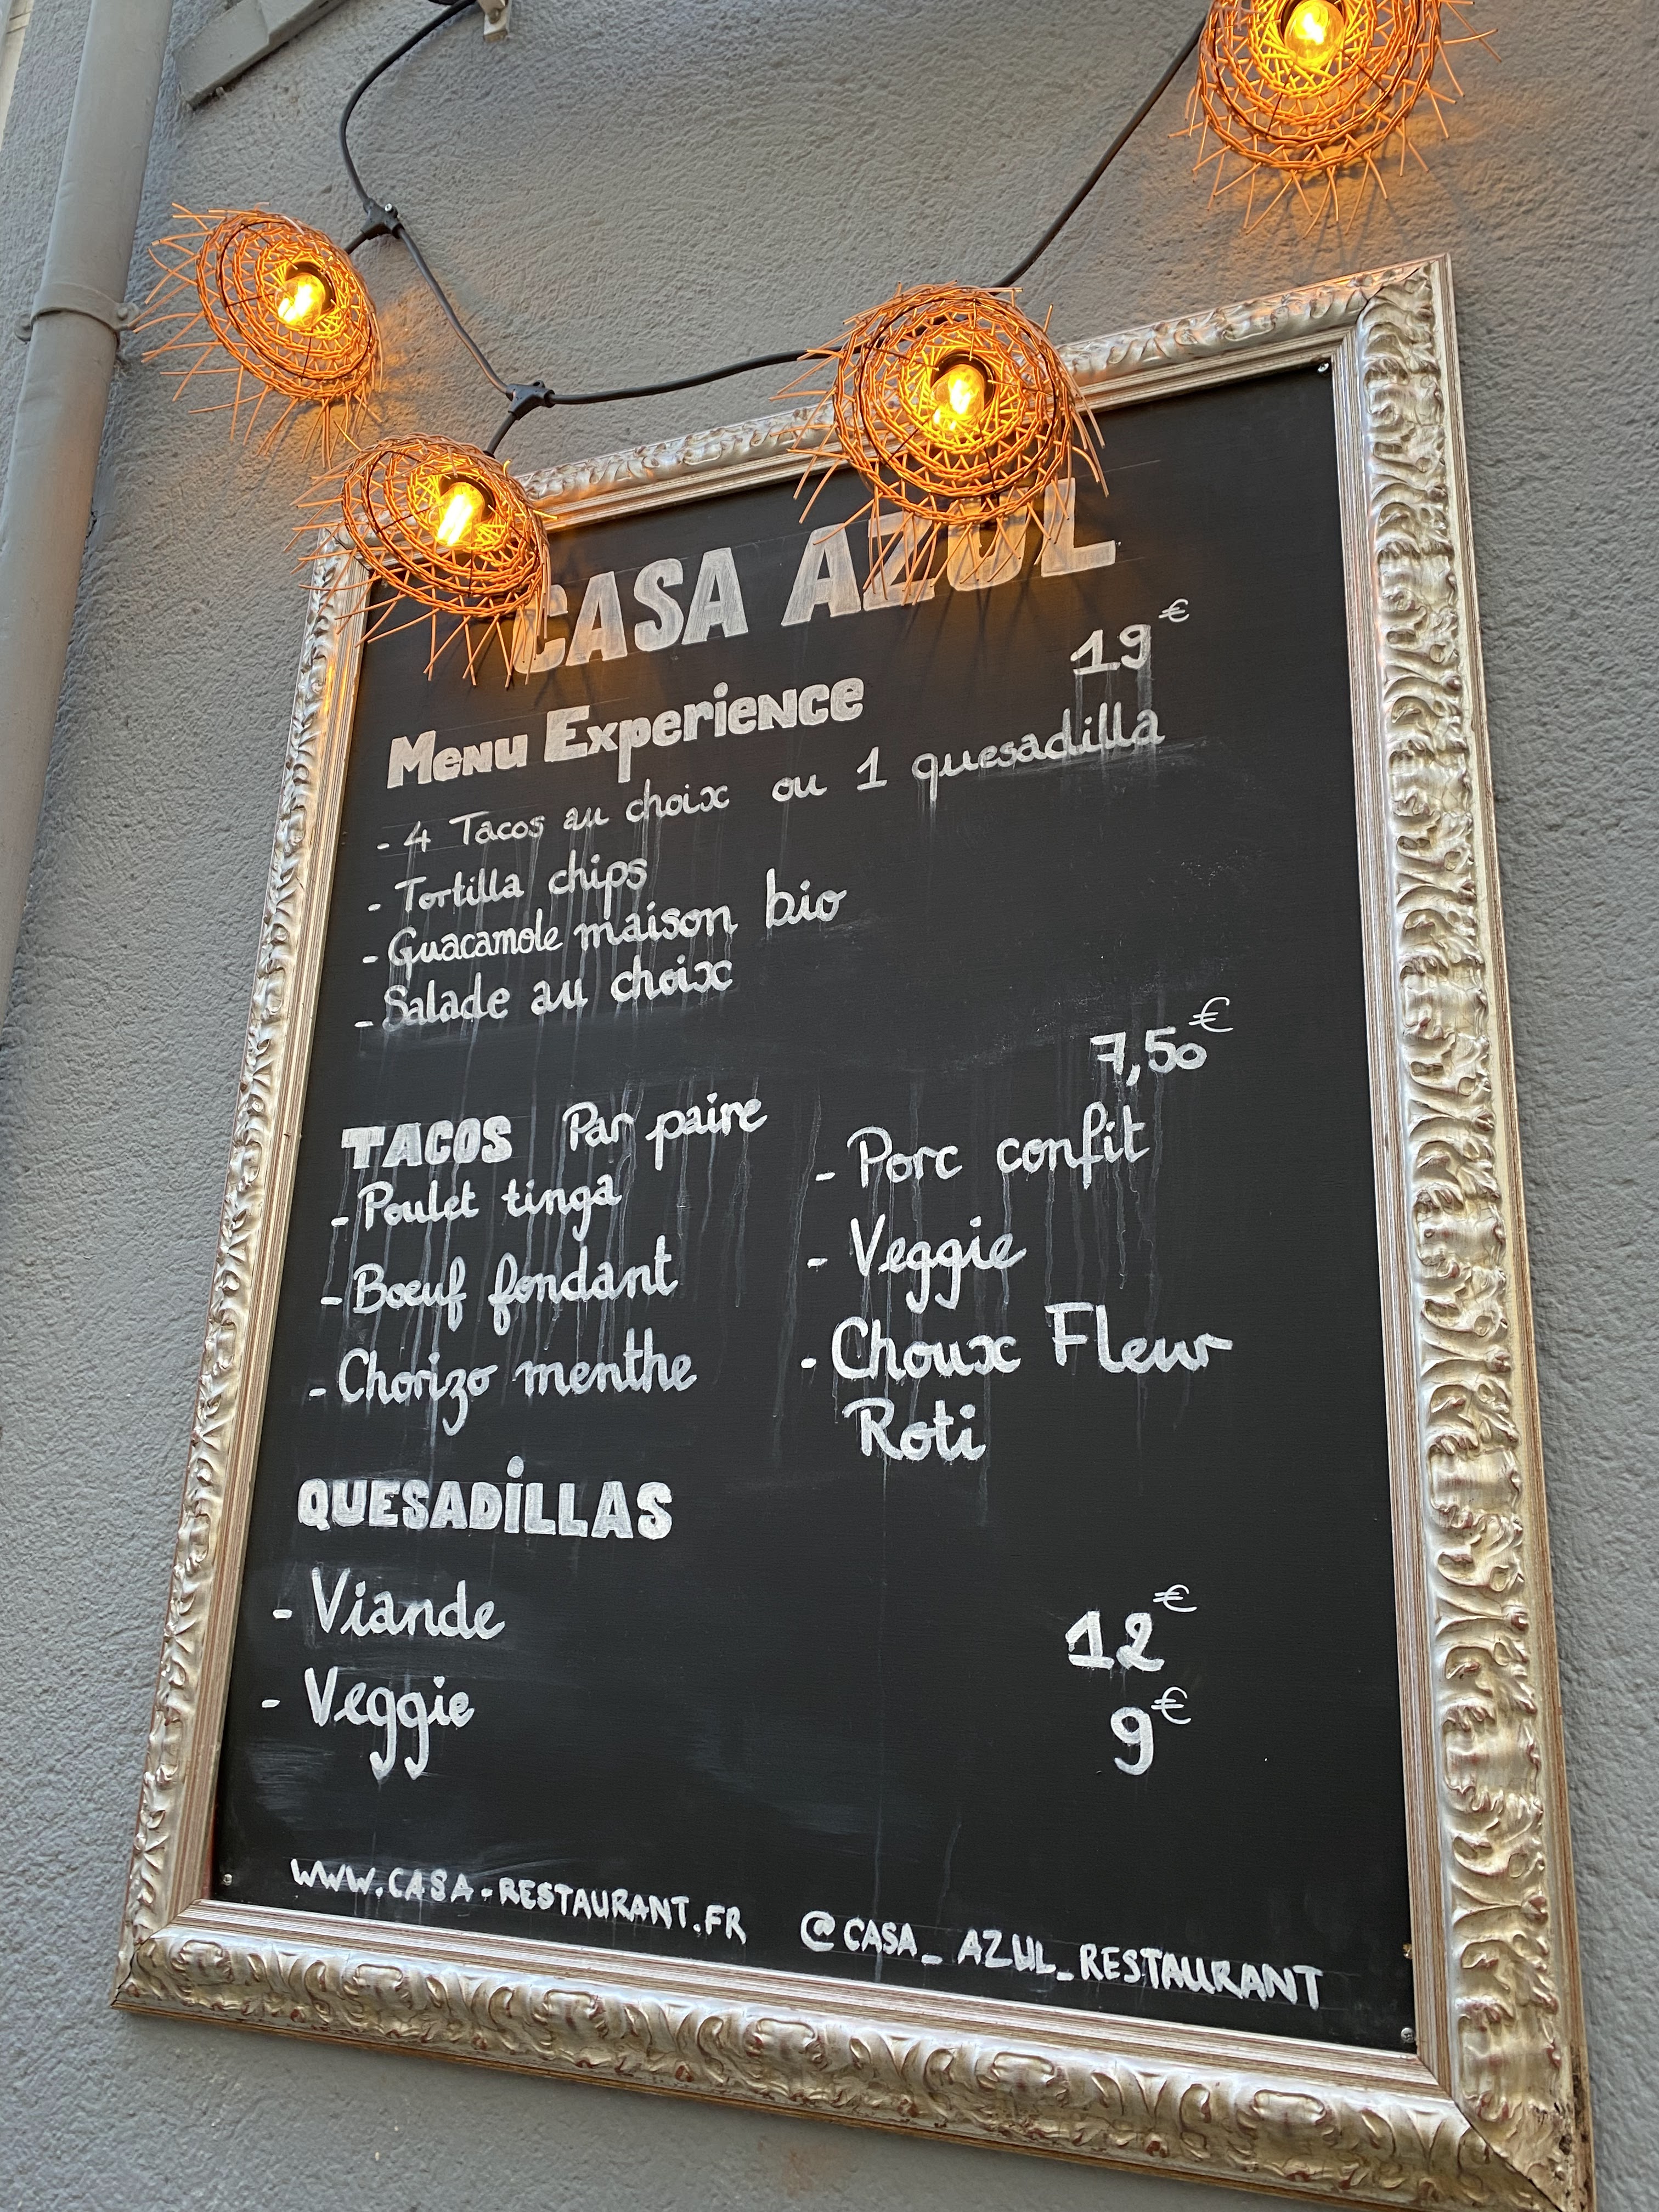 CASA AZUL
Menu Experience 19€
- 4 Tacos au choix ou 1 quesadilla
- Tortilla chips
- Guacamole maison bio
- Salade au choix
7,50€
TACOS Par paire
- Poulet tinga
- Boeuf fondant
- Chorizo menthe
- Porc confit
- Veggie
- Choux Fleur
Roti
QUESADILLAS
- Viande 12€
- Veggie 9€
WWW.CASA-RESTAURANT.FR @CASA_AZUL_RESTAURANT